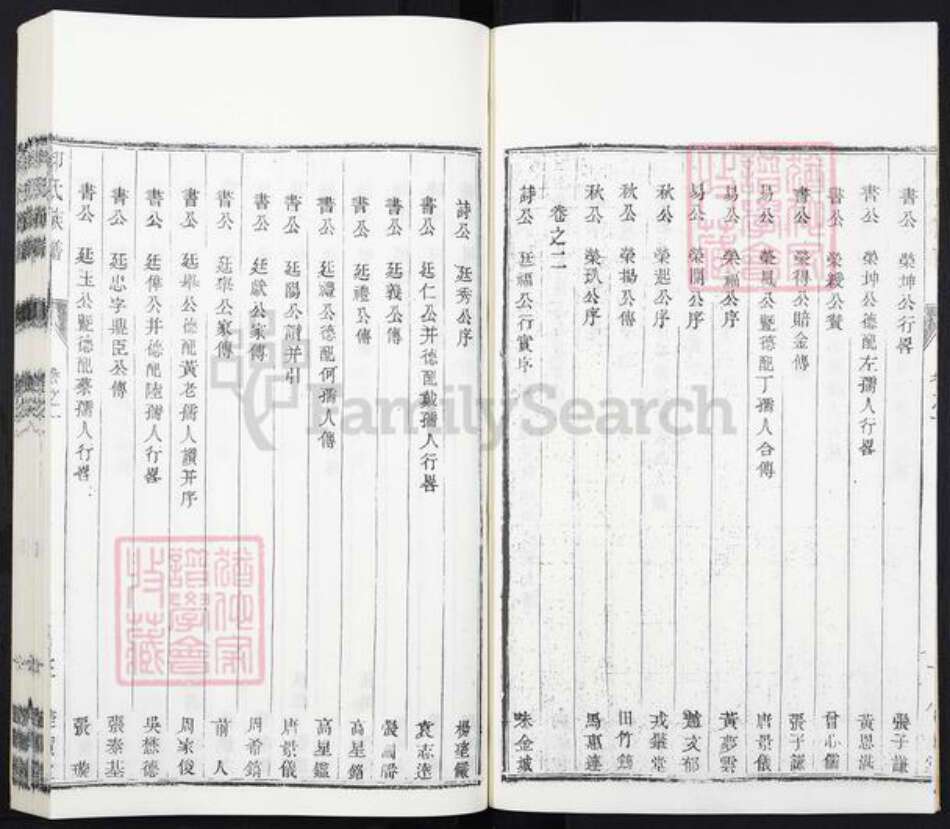 書公 榮坤公行畧 張子謙
書公 榮坤公德配左孺人行畧 黃恩洪
書公 榮綬公贊 曾心儒
書公 榮得公賠金傳 張子謙
易公 榮易公暨德配丁孺人合傳 唐景儀
易公 榮福公序 黃夢雲
易公 榮開公序 文郁
秋公 榮起公序 戎肇堂
秋公 榮揚公傳 田竹筠
秋公 榮玖公序 馬惠蓮
卷之二
詩公 廷福公行實序 金城
詩公 廷秀公序 楊
書公 廷仁公并德配戴孺人行畧 袁志達
書公 廷義公傳
書公 廷禮公傳 高星鎔
書公 廷禮公德配何孺人傳 高星鑑
書公 廷陽公讚并引 唐景儀
書公 廷獻公家傳 周希
書公 廷舉公家傳 前人
書公 廷舉公德配黃老孺人讚并序 周家俊
書公 廷偉公并德配陸孺人行畧 吳懋德
書公 廷忠字鼎臣公傳 張泰基
書公 廷玉公暨德配蔡孺人行畧 張
氏族譜
卷之一
FamilySearch